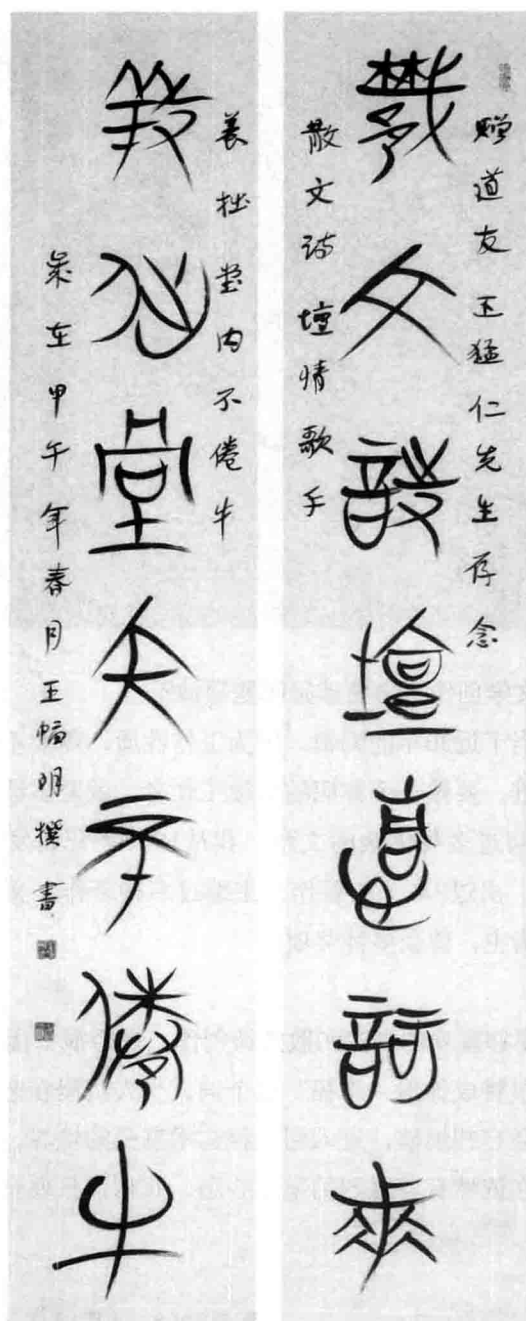 赠道友王猛仁先生存念
散文詩壇情歌手
散文诗壇情歌手
养拙堂内不倦牛
養拙堂内不倦牛
岁在甲午年春月王幅明撰書